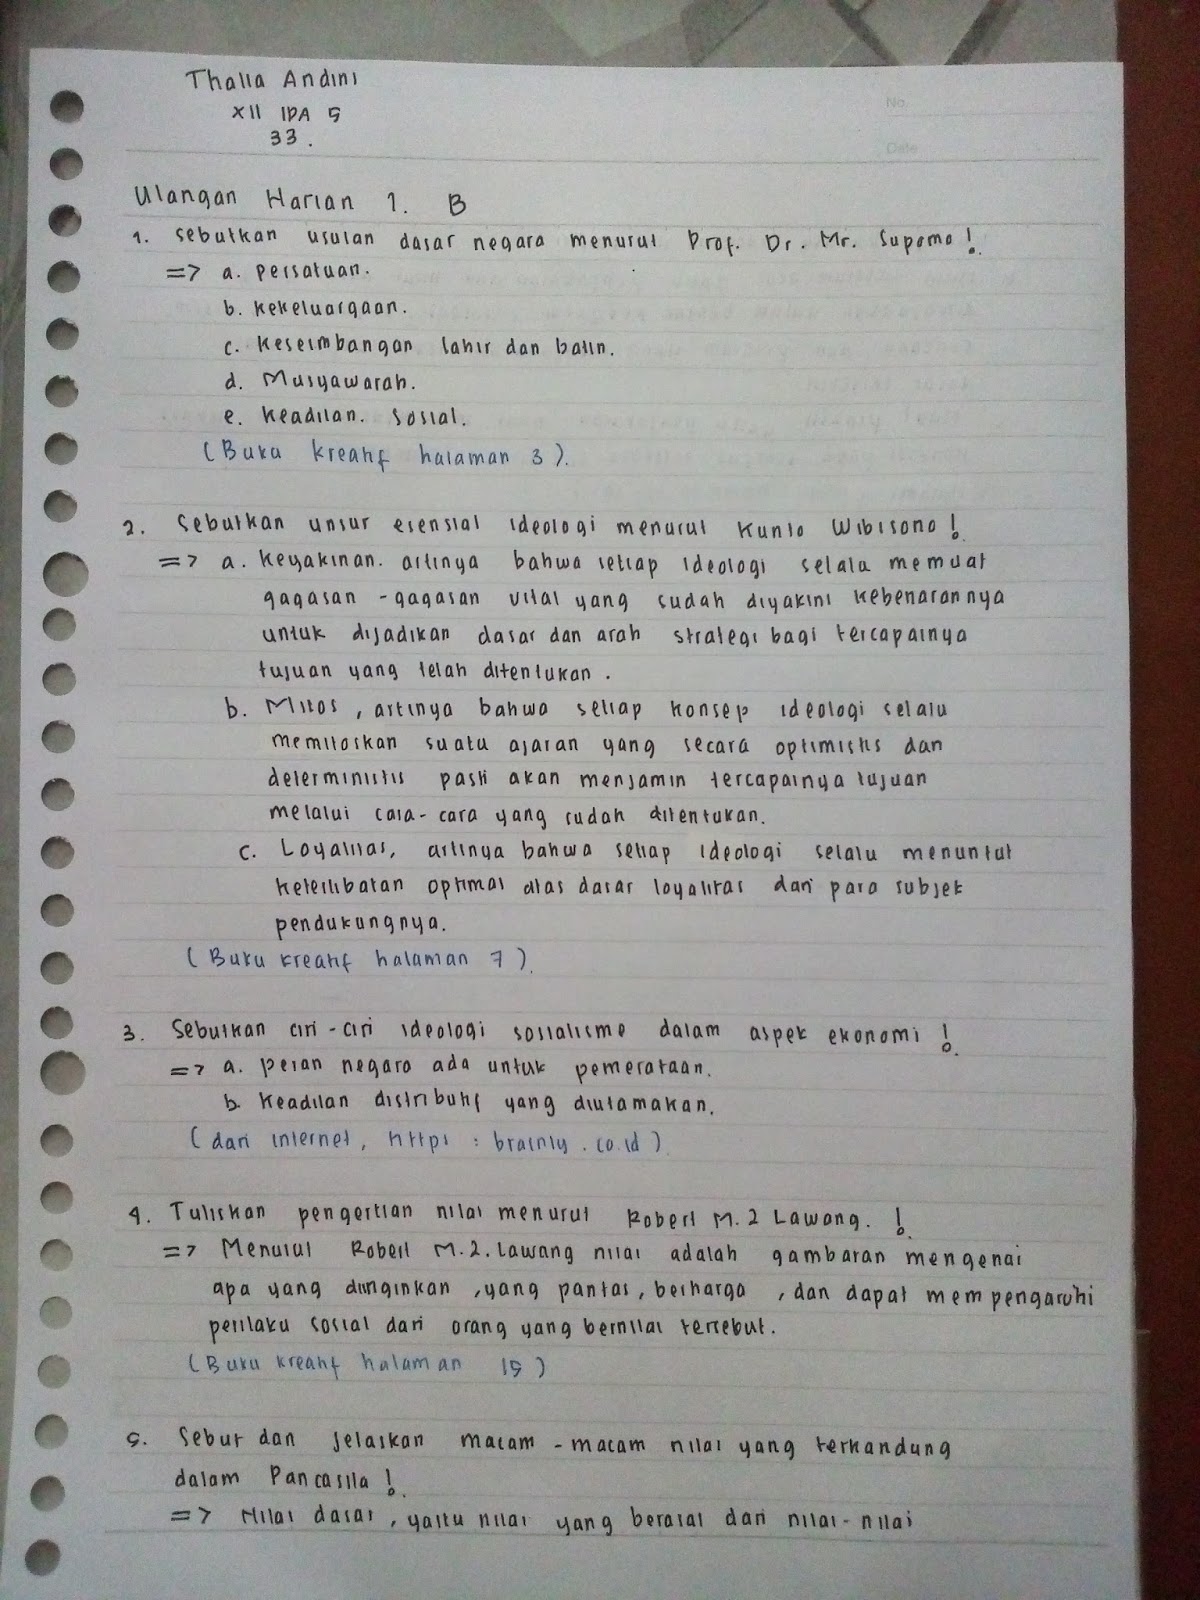 Thalia Andini
XII IPA 5
33.
No.
Date
Ulangan Harian 1. B
1. Sebutkan usulan dasar negara menurut Prof. Dr. Mr. Supomo!
=> a. Persatuan.
b. Kekeluargaan.
c. Keseimbangan lahir dan batin.
d. Musyawarah.
e. Keadilan. Sosial.
(Buku kreatif halaman 3).
2. Sebutkan unsur esensial ideologi menurut Kunto Wibisono!
=> a. Keyakinan. artinya bahwa setiap ideologi selalu memuat
gagasan-gagasan vital yang sudah diyakini kebenarannya
untuk dijadikan dasar dan arah strategi bagi tercapainya
tujuan yang telah ditentukan.
b. Mitos, artinya bahwa setiap konsep ideologi selalu
memitoskan suatu ajaran yang secara optimistis dan
deterministis pasti akan menjamin tercapainya tujuan
melalui cara-cara yang sudah ditentukan.
c. Loyalitas, artinya bahwa setiap ideologi selalu menuntut
keterlibatan optimal atas dasar loyalitas dari para subjek
pendukungnya.
(Buku kreatif halaman 7).
3. Sebutkan ciri-ciri ideologi sosialisme dalam aspek ekonomi!
=> a. peran negara ada untuk pemerataan.
b. Keadilan distributif yang diutamakan.
(dari internet, https : brainly.co.id)
4. Tuliskan pengertian nilai menurut Robert M.Z Lawang.!
=> Menurut Robert M.Z.Lawang nilai adalah gambaran mengenai
apa yang diinginkan, yang pantas, berharga, dan dapat mempengaruhi
perilaku sosial dari orang yang bernilai tersebut.
(Buku kreatif halaman 15)
5. Sebut dan jelaskan macam-macam nilai yang terkandung
dalam Pancasila!
=> Nilai dasar, yaitu nilai yang berasal dari nilai-nilai